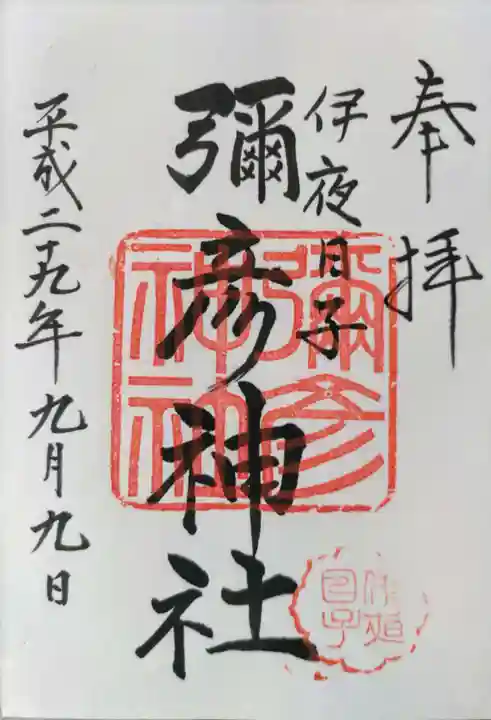 奉拝
伊夜日子
彌彦神社
彌彦
神社
平成二十九年九月九日